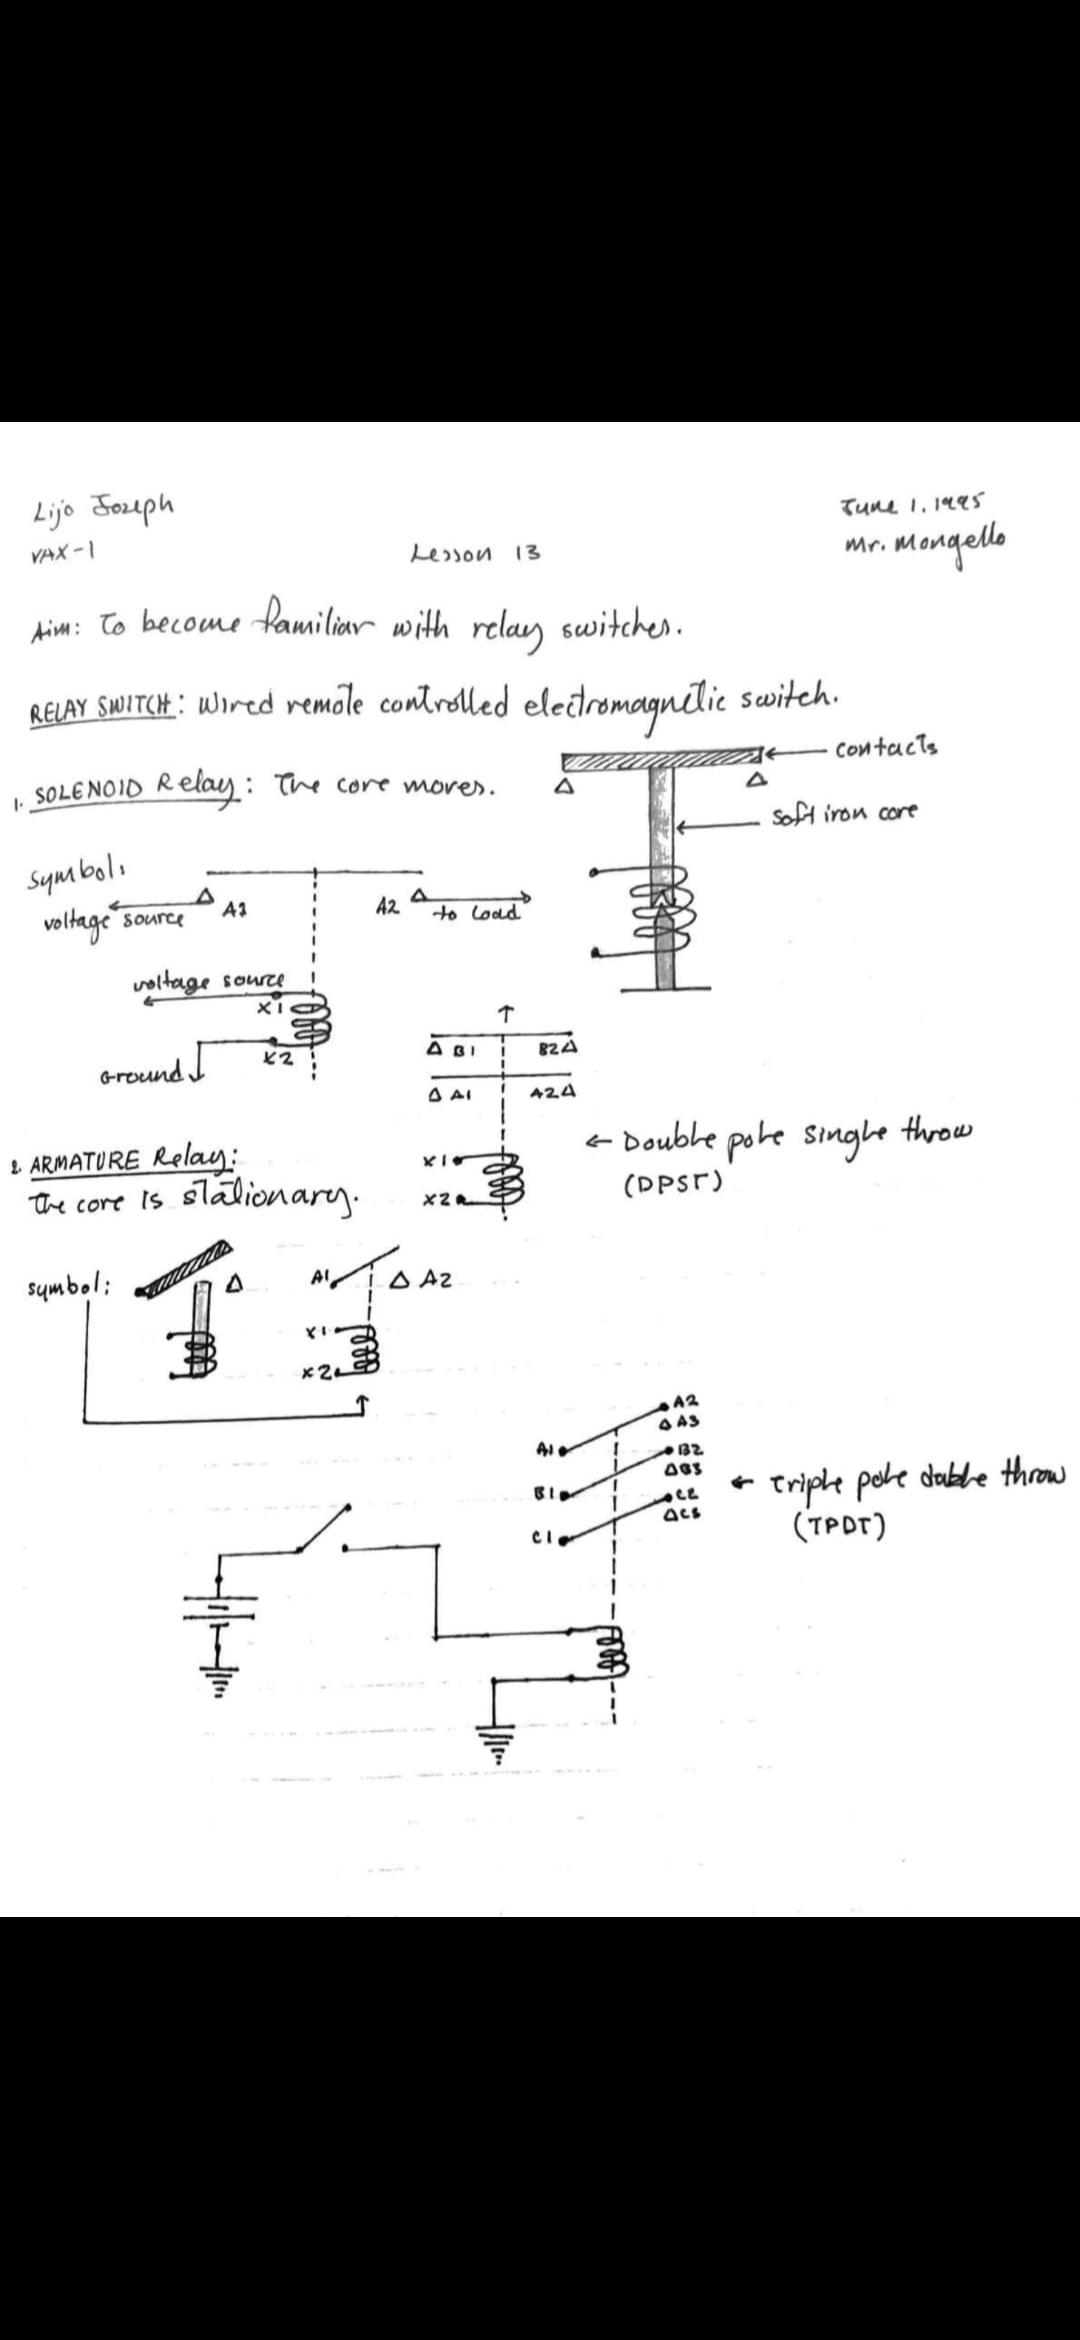 Lijo Joseph
June 1, 1995
VAX-1
Lesson 13
Mr. Mongello
Aim: To become familiar with relay switches.
RELAY SWITCH: Wired remote controlled electromagnetic switch.
contacts
1. SOLENOID Relay: The core moves.
soft iron core
Symbol:
voltage source
A1
A2
to load
voltage source
X1
X2
Ground
B1
B2
A1
A2
X1
X2
← Double pole single throw
(DPST)
2. ARMATURE Relay:
The core is stationary.
symbol:
A1
A2
X1
X2
A2
A3
A1
B2
B3
B1
C2
C3
C1
← Triple pole double throw
(TPDT)